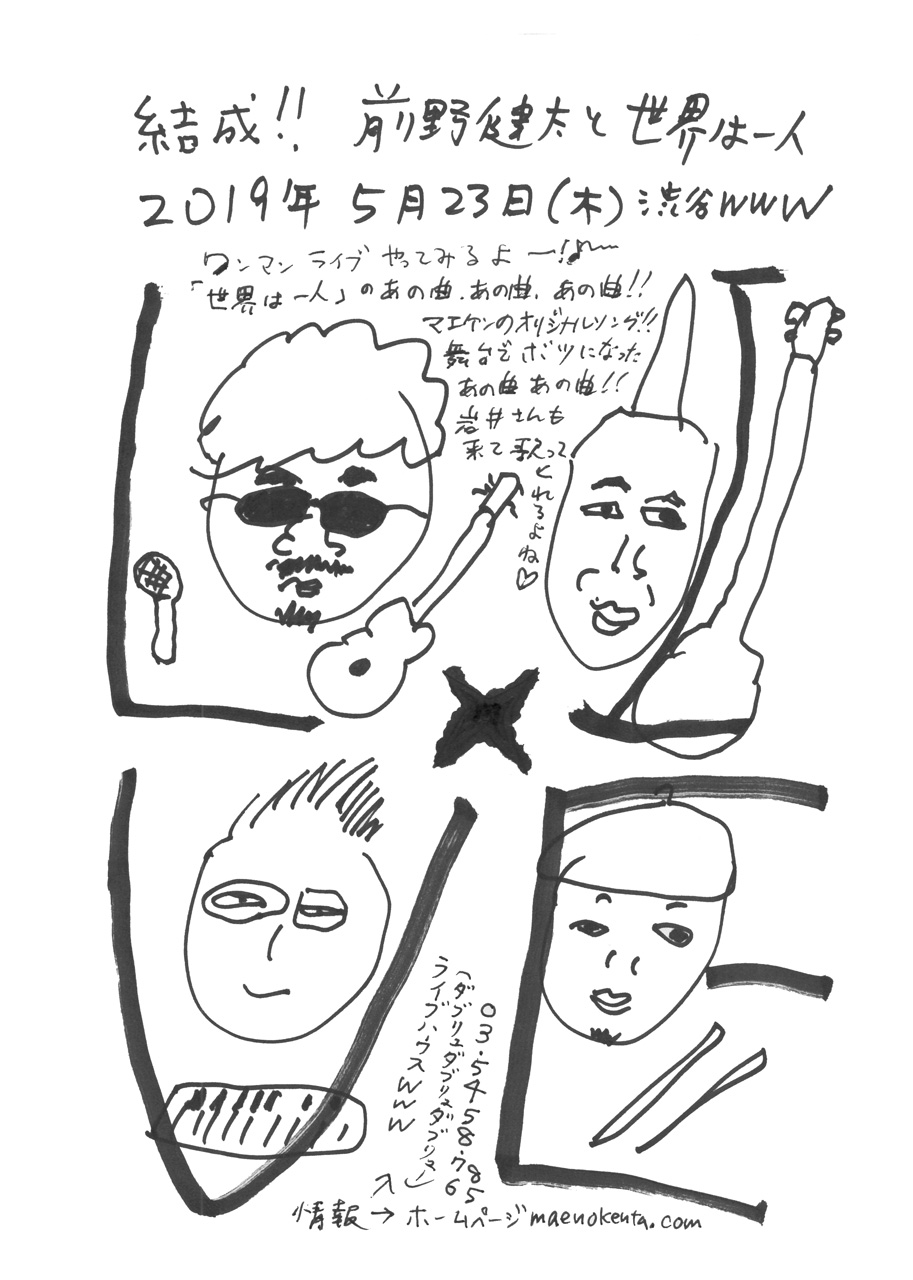 結成!! 前野健太と世界は一人
2019年 5月23日(木) 渋谷WWW
ワンマン ライブ やってみるよー!♪
「世界は一人」のあの曲、あの曲、あの曲!!
マエケンのオリジナルソング!!
舞台でボツになった
あの曲 あの曲!!
岩井さんも
来て歌って
くれるよね♡
LIVE
03・5458・7685
(ダブリュダブリュダブリュー)
ライブハウスWWW
情報→ホームページ maenokenta.com